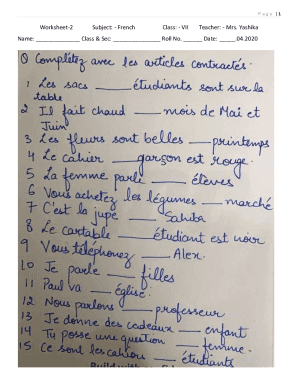 Page | 1
Worksheet-2 Subject: - French Class: - VII Teacher: - Mrs. Yashika
Name: ____________ Class & Sec: ____________ Roll No. ______ Date: ______.04.2020
Q Complétez avec les articles contractés.
1 Les sacs ____ étudiants sont sur la
table
2 Il fait chaud ____ mois de Mai et
Juin
3 Les fleurs sont belles ____ printemps
4 Le cahier ____ garçon est rouge.
5 La femme parle ____ élèves
6 Vous achetez les légumes ____ marché
7 C'est la jupe ____ Sahiba
8 Le cartable ____ étudiant est noir
9 Vous téléphonez ____ Alex.
10 Je parle ____ filles
11 Paul va ____ église.
12 Nous parlons ____ professeur
13 Je donne des cadeaux ____ enfant
14 Tu posse une question ____ femme.
15 Ce sont les cahiers ____ étudiants